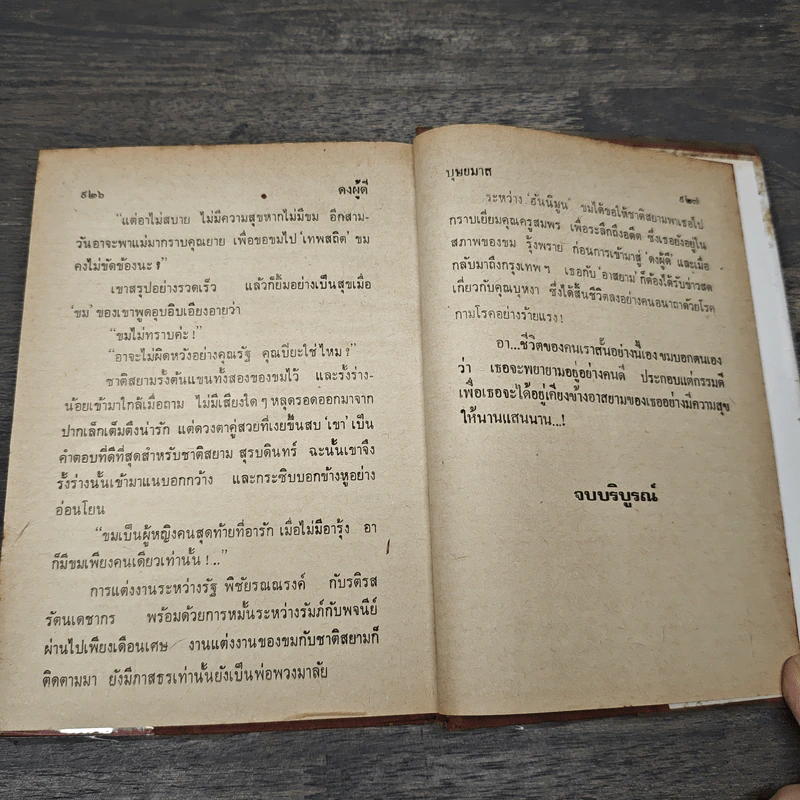 ๕๒๖ ดงผู้ดี
“แต่อาไม่สบาย ไม่มีความสุขหากไม่มีขม อีกสาม-
วันอาจะพาแม่มากราบคุณยาย เพื่อขอขมไป ‘เทพสถิต’ ขม
คงไม่ขัดข้องนะ ?”
เขาสรุปอย่างรวดเร็ว แล้วก็ยิ้มอย่างเป็นสุขเมื่อ
‘ขม’ ของเขาพูดอุบอิบเอียงอายว่า
“ขมไม่ทราบค่ะ !”
“อาจะไม่ผิดหวังอย่างคุณรัฐ คุณปิยะใช่ไหม ?”
ชาติสยามรั้งต้นแขนทั้งสองของขมไว้ และรั้งร่าง-
น้อยเข้ามาใกล้เมื่อถาม ไม่มีเสียงใด ๆ หลุดรอดออกมาจาก
ปากเล็กเต็มตึงน่ารัก แต่ดวงตาคู่สวยที่เงยขึ้นสบ ‘เขา’ เป็น
คำตอบที่ดีที่สุดสำหรับชาติสยาม สุรบดินทร์ ฉะนั้นเขาจึง
รั้งร่างนั้นเข้ามาแนบอกกว้าง และกระซิบบอกข้างหูอย่าง
อ่อนโยน
“ขมเป็นผู้หญิงคนสุดท้ายที่อารัก เมื่อไม่มีอารุ้ง อา
ก็มีขมเพียงคนเดียวเท่านั้น !..”
การแต่งงานระหว่างรัฐ พิชัยรณณรงค์ กับรติรส
รัตนเดชากร พร้อมด้วยการหมั้นระหว่างรัมภ์กับพจนีย์
ผ่านไปเพียงเดือนเศษ งานแต่งงานของขมกับชาติสยามก็
ติดตามมา ยังมีภาสธรเท่านั้นยังเป็นพ่อพวงมาลัย
บุษยมาส ๕๒๗
ระหว่าง ‘ฮันนีมูน’ ขมได้ขอให้ชาติสยามพาเธอไป
กราบเยี่ยมคุณครูสมพร เพื่อระลึกถึงอดีต ซึ่งเธอยังอยู่ใน
สภาพของขม รุ้งพราย ก่อนการเข้ามาสู่ ‘ดงผู้ดี’ และเมื่อ
กลับมาถึงกรุงเทพ ฯ เธอกับ ‘อาสยาม’ ก็ต้องได้รับข่าวสด
เกี่ยวกับคุณบุหงา ซึ่งได้สิ้นชีวิตลงอย่างคนอนาถาด้วยโรค
กามโรคอย่างร้ายแรง !
อา...ชีวิตของคนเราสั้นอย่างนี้เอง ขมบอกตนเอง
ว่า เธอจะพยายามอยู่อย่างคนดี ประกอบแต่กรรมดี
เพื่อเธอจะได้อยู่เคียงข้างอาสยามของเธออย่างมีความสุข
ให้นานแสนนาน...!
จบบริบูรณ์